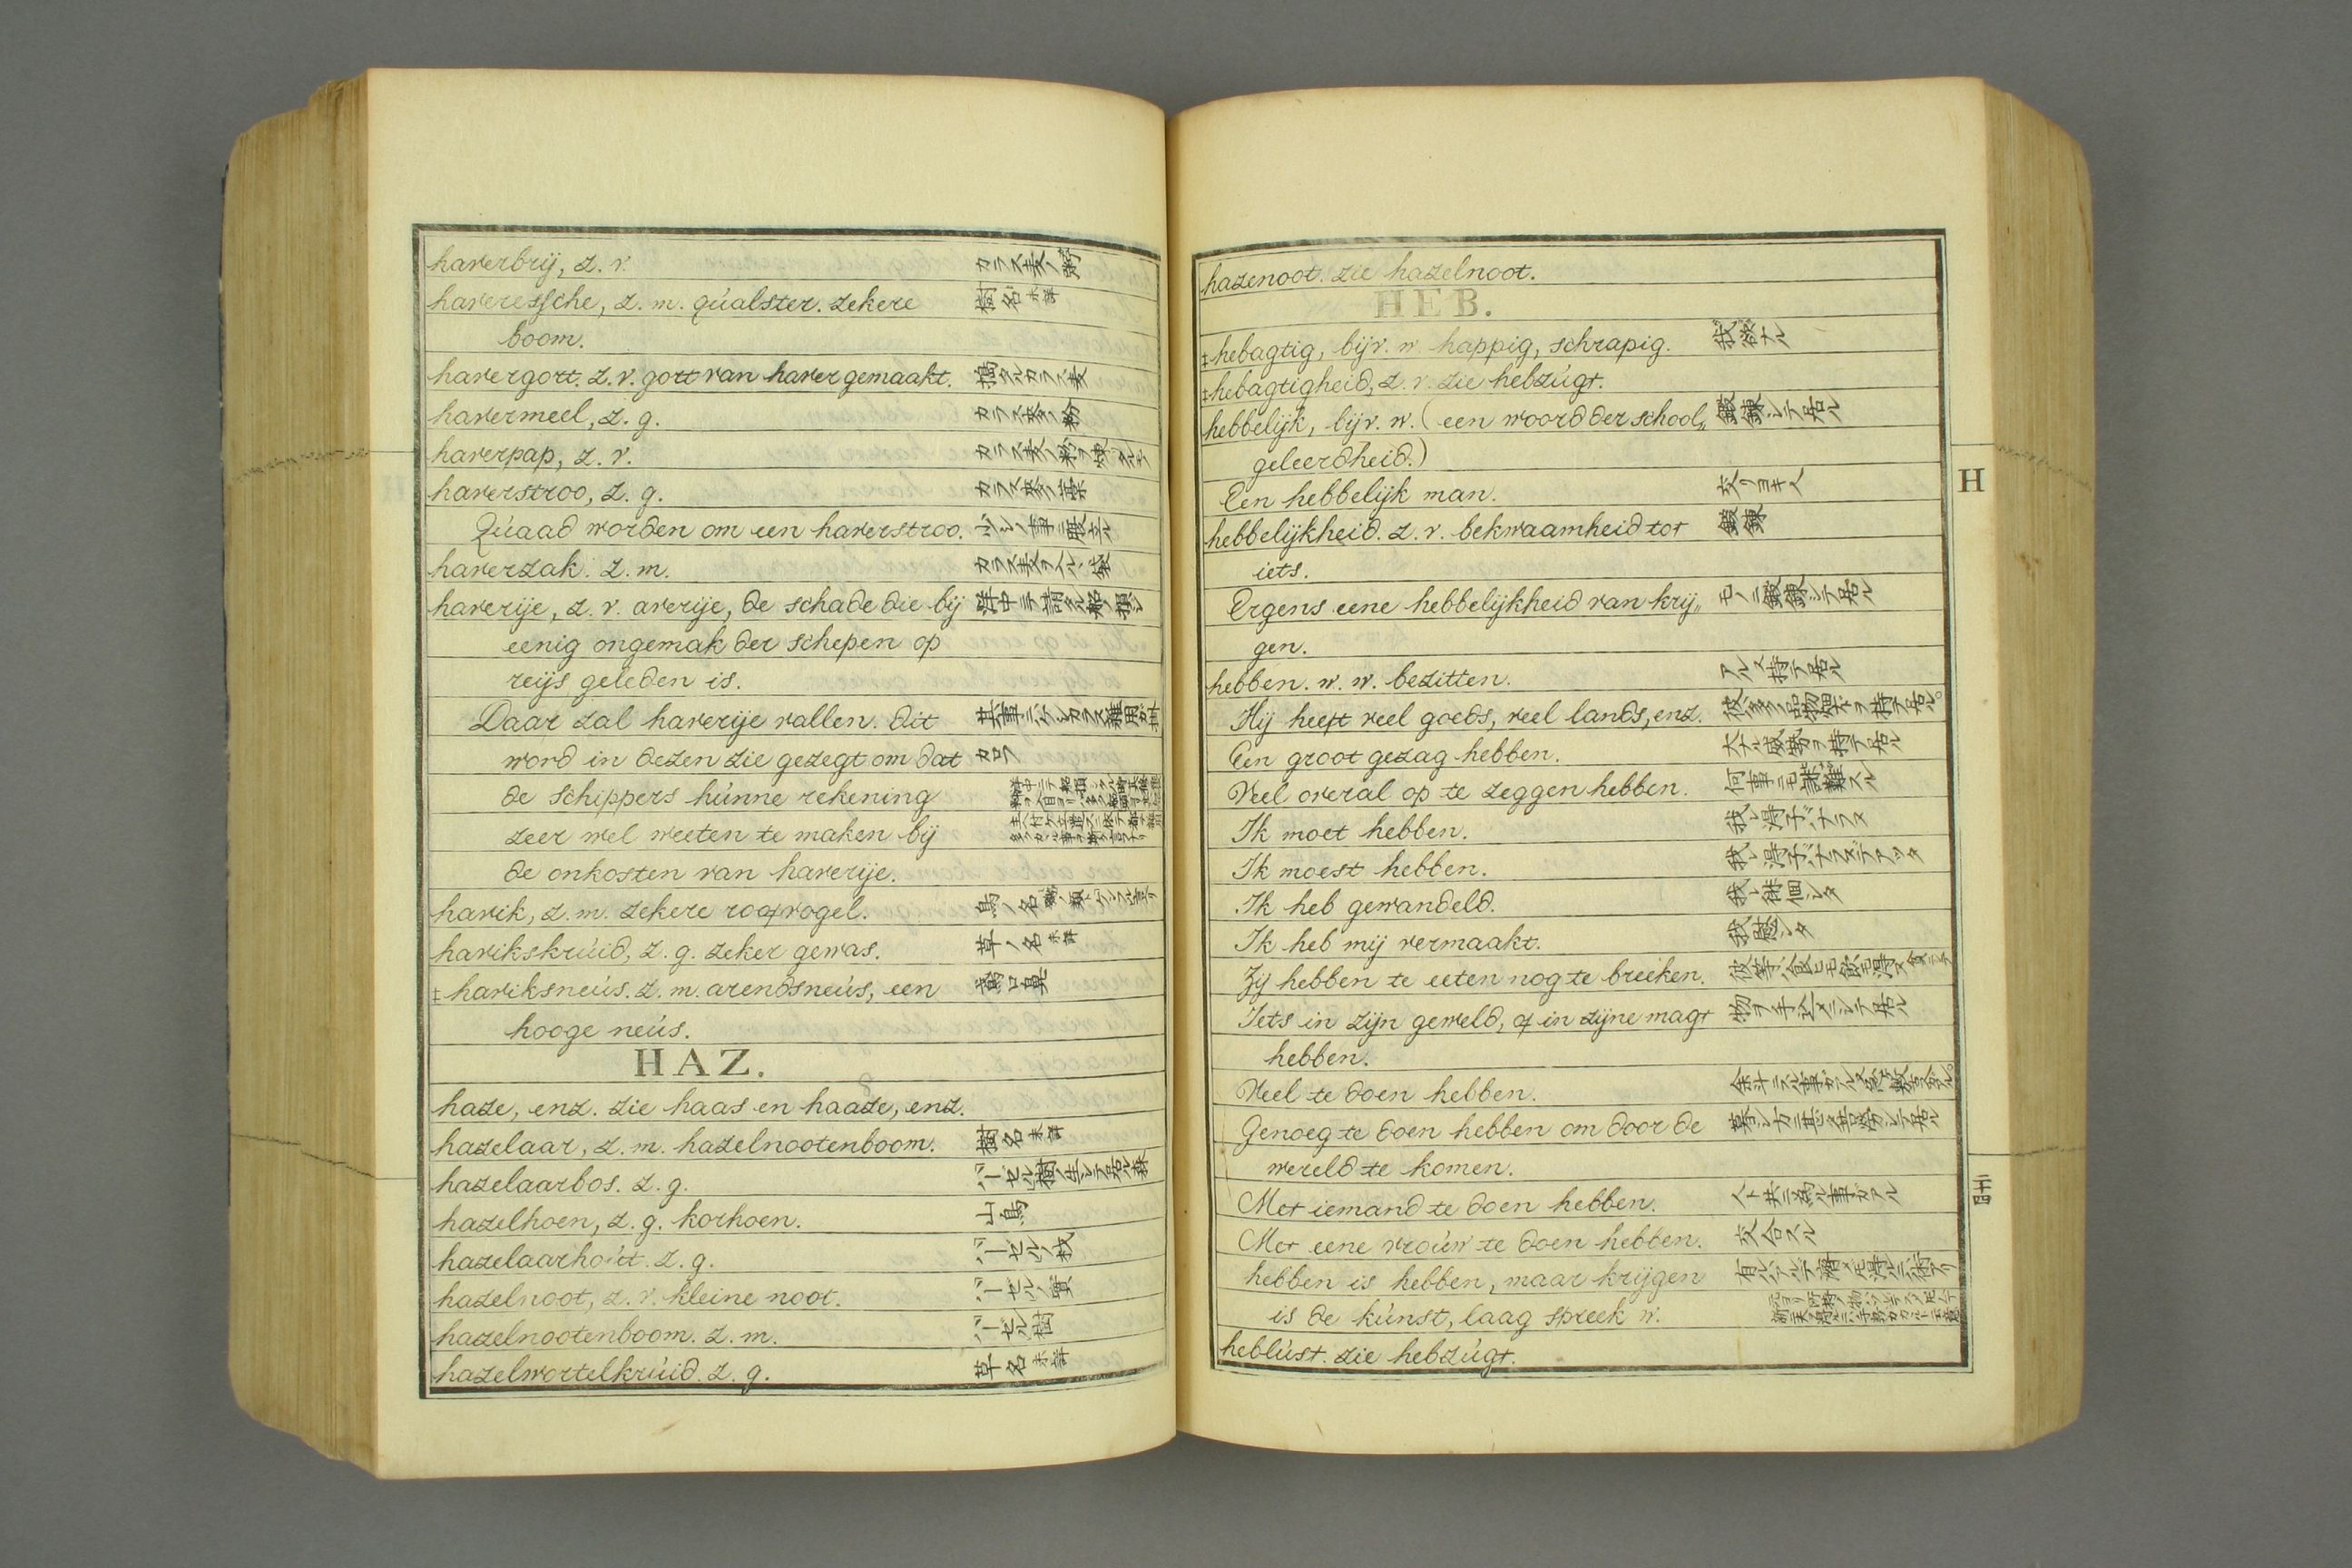 haverbrij, z. v. カラス麦ノ粥
haveressche, z. m. qúalster. zekere 樹名未詳
boom.
havergort. z. v. gort van haver gemaakt. 搗タルカラス麦
havermeel, z. g. カラス麥ノ粉
haverpap, z. v. カラス麦ノ粉ヲ煉タルモノ
haverstroo, z. g. カラス麥ノ藁
Qúaad worden om een haverstroo. 少シノ事ニ腹立ル
haverzak. z. m. カラス麦ヲ入ル袋
haverije, z. v. averije, de schade die bij 洋中ニテ請タル船ノ損シ
eenig ongemak der schepen op
reijs geleden is.
Daar zal haverije vallen. dit 其事ニハケシカラヌ雜用ガ掛
word in dezen zie gezegt om dat カロフ
de schippers húnne rekening
zeer wel weeten te maken bij
de onkosten van haverije.
havik, z. m. zekere roofvogel. 鳥ノ名
havikskrúid, z. g. zeker gewas. 草ノ名未詳
‡ haviksneús. z. m. arendsneús, een 鷲口鼻
hooge neús.
HAZ.
haze, enz. zie haas en haaze, enz.
hazelaar, z. m. hazelnootenboom. 樹名未詳
hazelaarbos. z. g. ハーゼル樹ノ生シテ居ル森
hazelhoen, z. g. korhoen. 山鳥
hazelaarhoút. z. g. ハーゼルノ材
hazelnoot, z. v. kleine noot. ハーゼルノ實
hazelnootenboom. z. m. ハーゼル樹
hazelwortelkrúid. z. g. 草名未詳
hazenoot. zie hazelnoot.
HEB.
‡ hebagtig, bijv. w. happig, schrapig. 我欲ナル
‡ hebagtigheid, z. v. zie hebzúgt.
hebbelijk, bijv. w. (een woord der school„ 鍛錬シテ居ル
geleerdheid.)
Een hebbelijk man. 交リヨキ人
hebbelijkheid. z. v. bekwaamheid tot 鍛錬
iets.
Ergens eene hebbelijkheid van krij„ モノニ鍛錬シテ居ル
gen.
hebben. w. w. bezitten. アル又持テ居ル
Hij heeft veel goeds, veel lands, enz. 彼ハ多ク品物地ヲ持テ居ル。
Een groot gezag hebben. 大ナル威勢ヲ持テ居ル
Veel overal op te zeggen hebben. 何事ニモ誹難スル
Ik moet hebben. 我レ得子バナラヌ
Ik moest hebben. 我レ得子バナラヌデアツタ
Ik heb gewandeld. 我レ徘徊シタ
Ik heb mij vermaakt. 我慰シタ
Zij hebben te eeten nog te breeken. 彼等ハ食ヒモ飲モ得ヌ
Iets in zijn geweld, of in zijne magt 物ヲ手込メニシテ居ル
hebben.
Veel te doen hebben.
Genoeg te doen hebben om door de 暮シ方ニ甚タ苦勞シテ居ル
wereld te komen.
Met iemand te doen hebben. 人ト共ニ為ル事ガアル
Met eene vroúw te doen hebben. 交合スル
hebben is hebben, maar krijgen
is de kúnst, laag spreek w.
heblúst. zie hebzúgt.
H